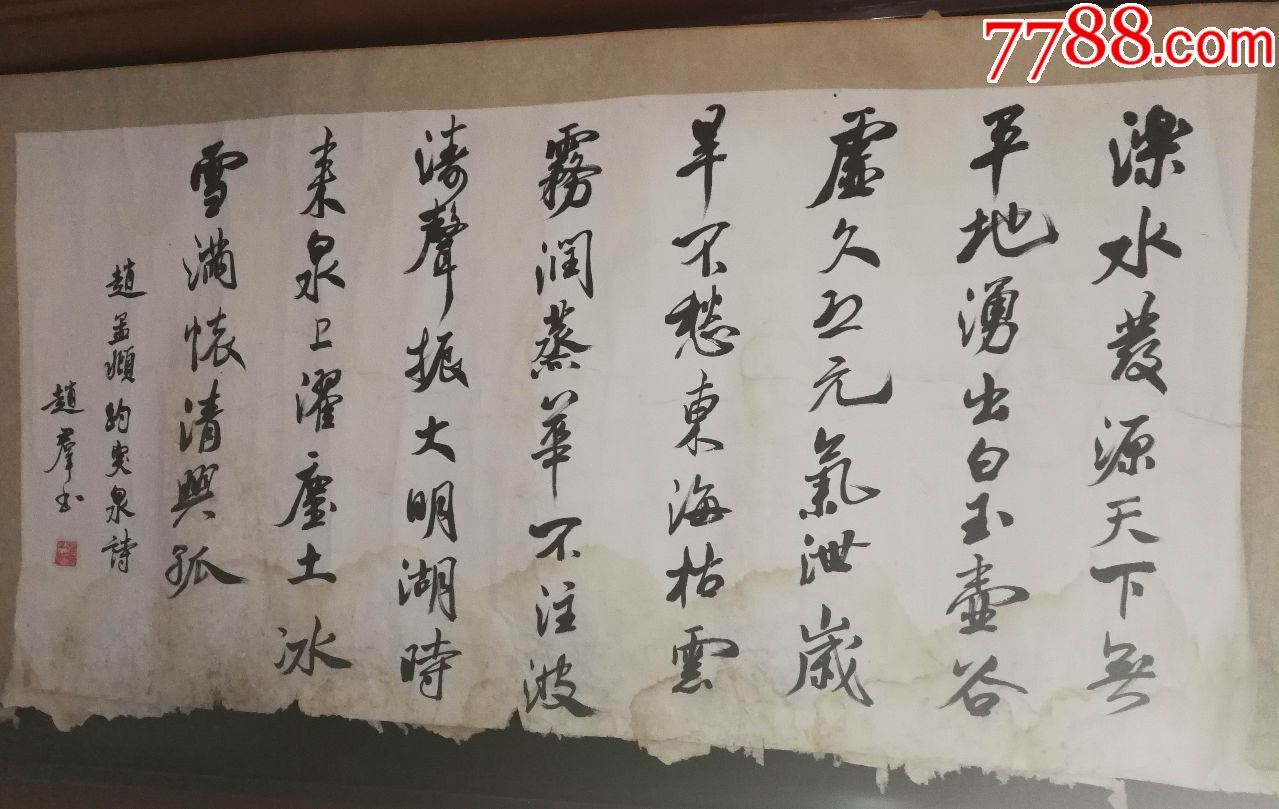 濼水發源天下無
平地湧出白玉壺谷
虛久恐元氣泄歲
旱不愁東海枯雲
霧潤蒸華不注波
濤聲振大明湖時
来泉上濯塵土冰
雪滿懷清興孤
趙孟頫趵突泉詩
趙羣书
7788.com